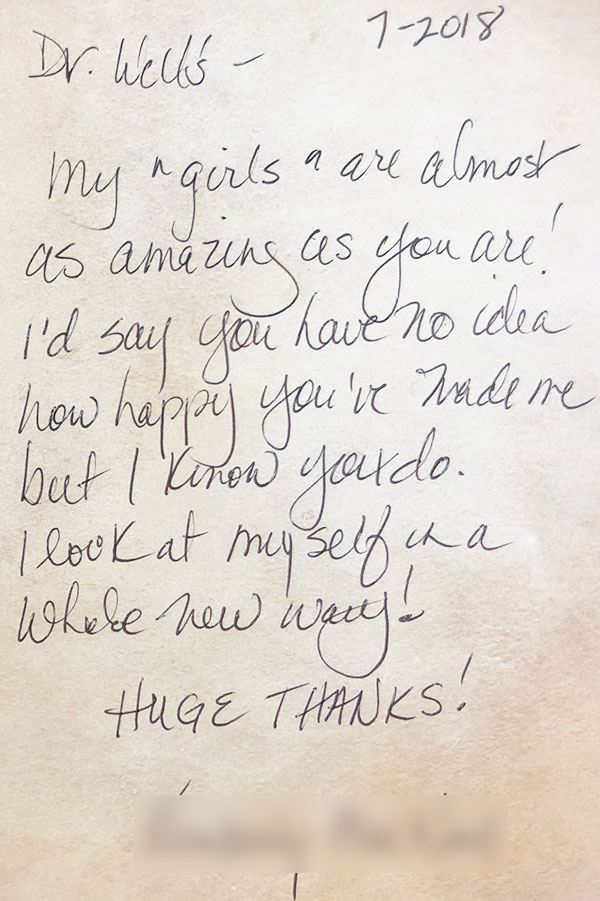 7-2018
Dr. Wells -
My "girls" are almost
as amazing as you are!
I'd say you have no idea
how happy you've made me
but I know you do.
I look at myself in a
whole new way!
HUGE THANKS!